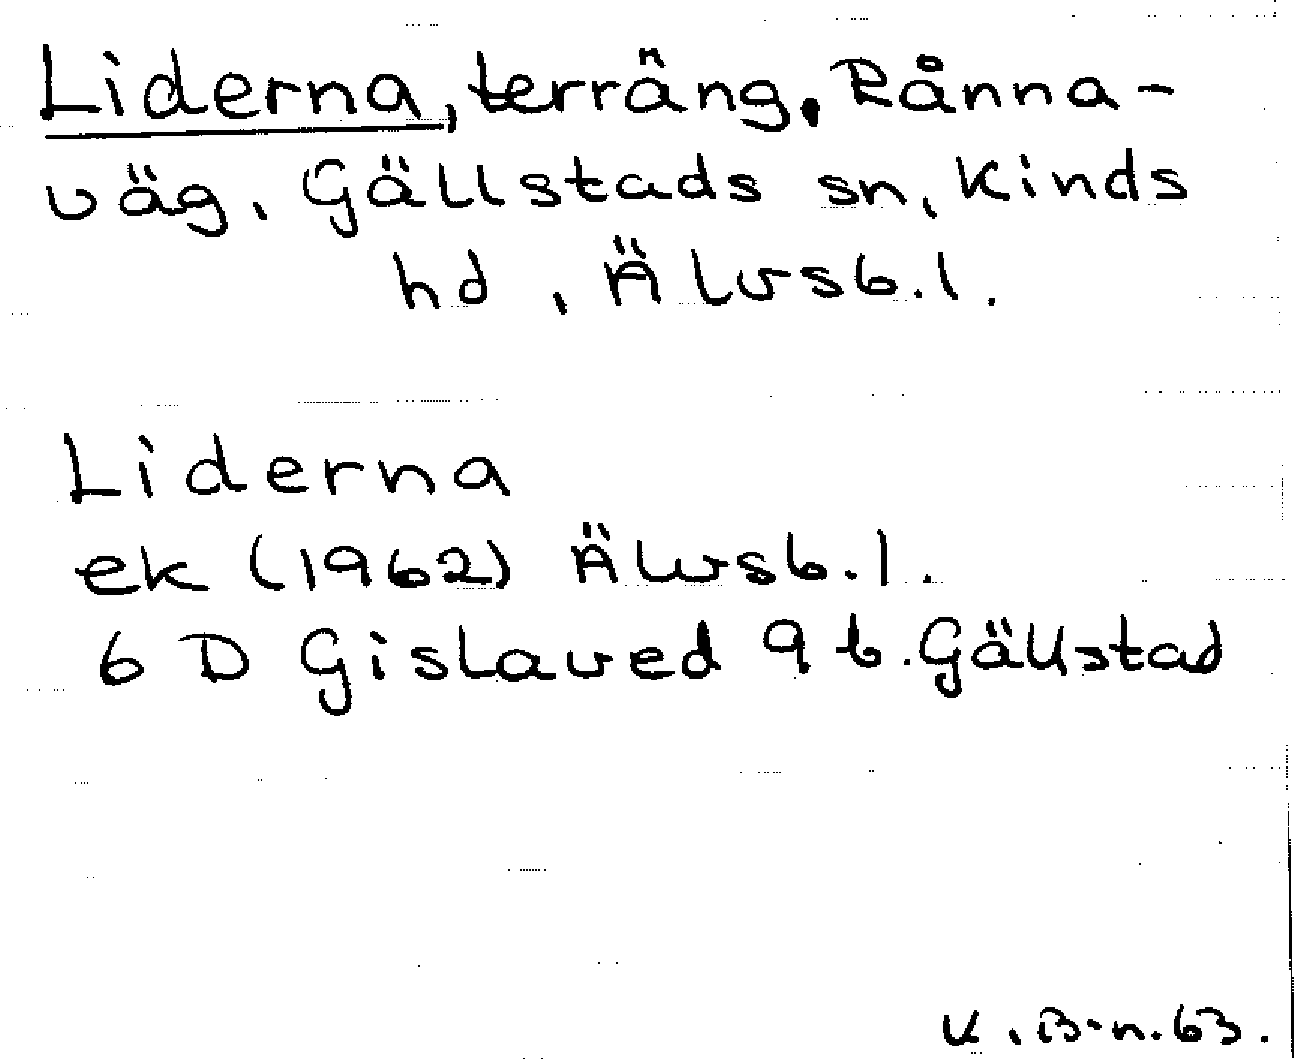 Liderna, terräng, Rånna-
väg, Gällstads sn, Kinds
hd, Älvsb.l.
Liderna
ek (1962) Älvsb.l.
6 D Gislaved 9 b. Gällstad
K. B-n. 63.